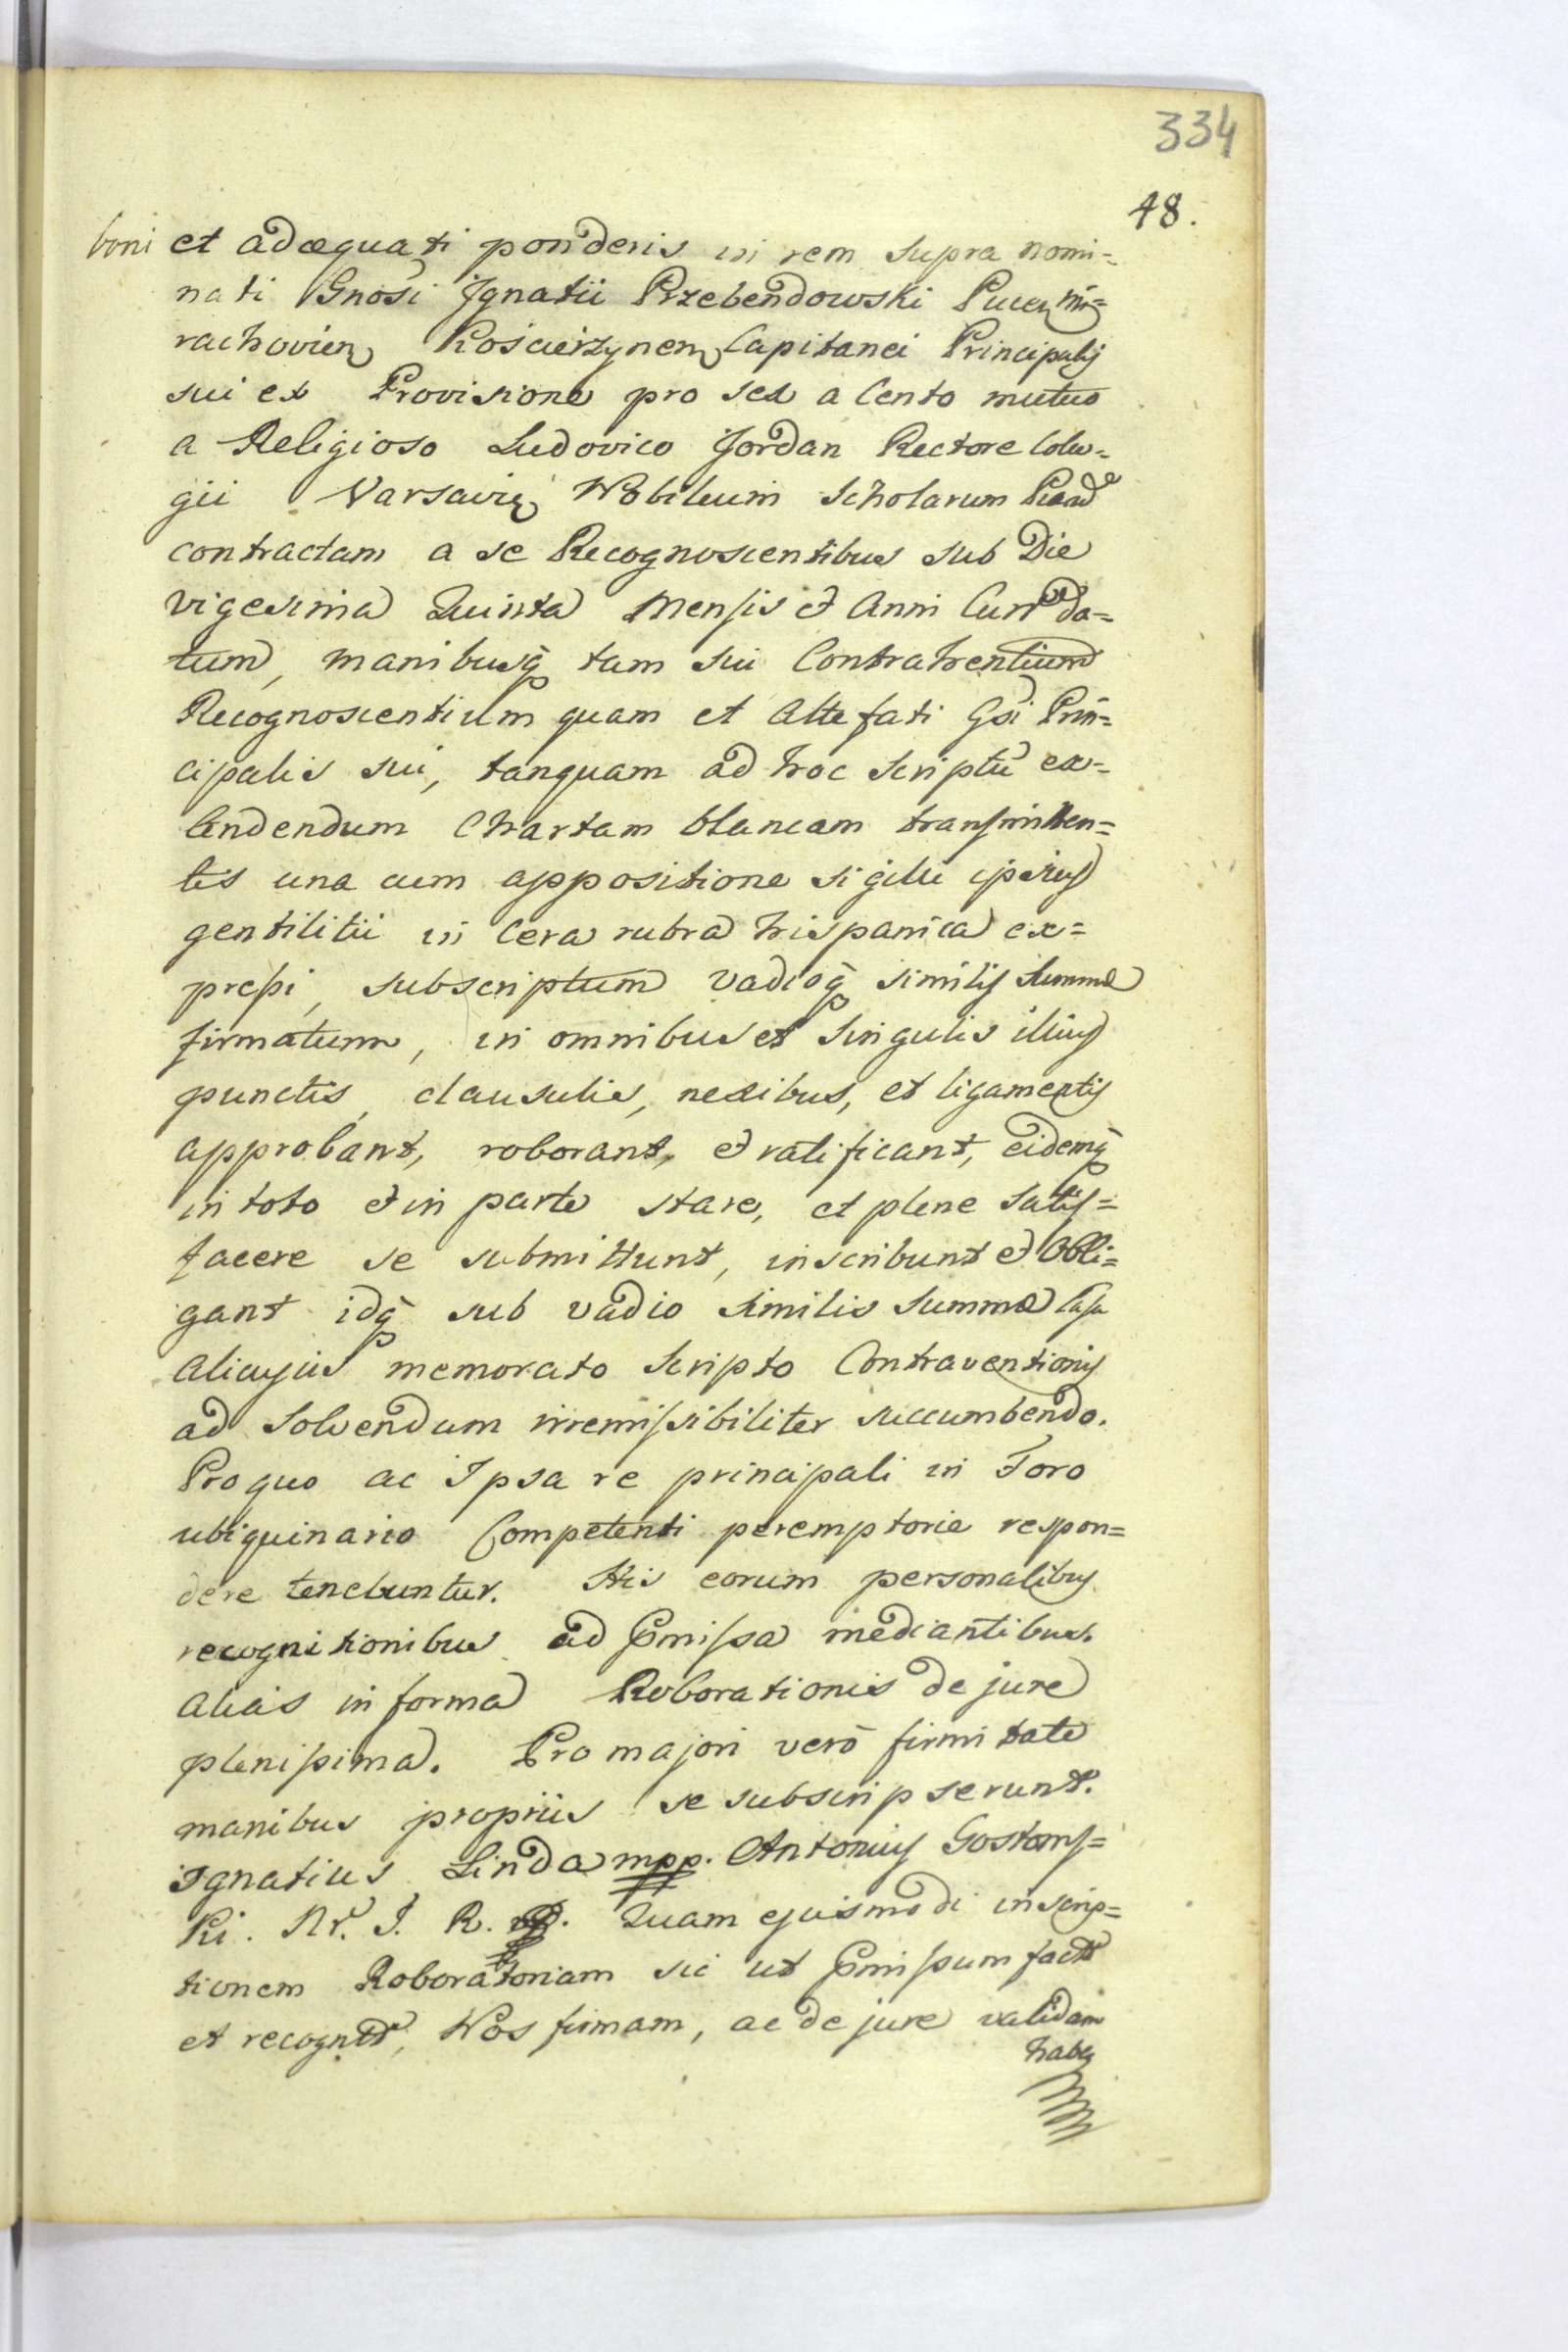 334
48.
boni et adæquati ponderis in rem supra nomi=
nati Gnosi Ignatii Przebendowski Pucen mi=
rachovien Kościerzynen Capitanei Principalis
sui ex Provisione pro sex a Cento mutuo
a Religioso Ludovico Jordan Rectore Colle=
gii Varsavię Nobilium Scholarum Piar
contractam a se Recognoscentibus sub Die
vigesima Quinta Mensis et Anni Curr da=
tum, manibusq tam sui Contrahentium
Recognoscentium quam et Attefati Gsi Prin=
cipalis sui, tanquam ad hoc scriptũ ex=
tendendum Chartam blancam transmitten=
tis una cum appositione sigilli ipsius
gentilitii in Cera rubra hispanica ex=
pressi, subscriptum vadioq similis summæ
firmatum, in omnibus et singulis illius
punctis, clausulis, nexibus, et ligamentis
approbant, roborant, et ratificant, eidemq
in toto et in parte stare, et plene satis=
facere se submittunt, inscribunt et Obli=
gant idq sub vadio similis summæ Casu
alicujus memorato scripto Contraventionis
ad solvendum irremissibiliter succumbendo.
Pro quo ac Ipsa re principali in Foro
ubiquinario Competenti peremptorie respon=
dere tenebuntur. His eorum personalibus
recognitionibus ad Pmissa mediantibus.
alias in forma Roborationis de jure
plenissima. Pro majori verò firmitate
manibus propriis se subscripserunt.
Ignatius Linda mpp. Antonius Gostoms=
ki. Nr. J. R. Quam ejusmodi inscrip=
tionem Roboratoriam sic ut Pmissum fact
et recognit, Nos firmam, ac de jure validam
habę